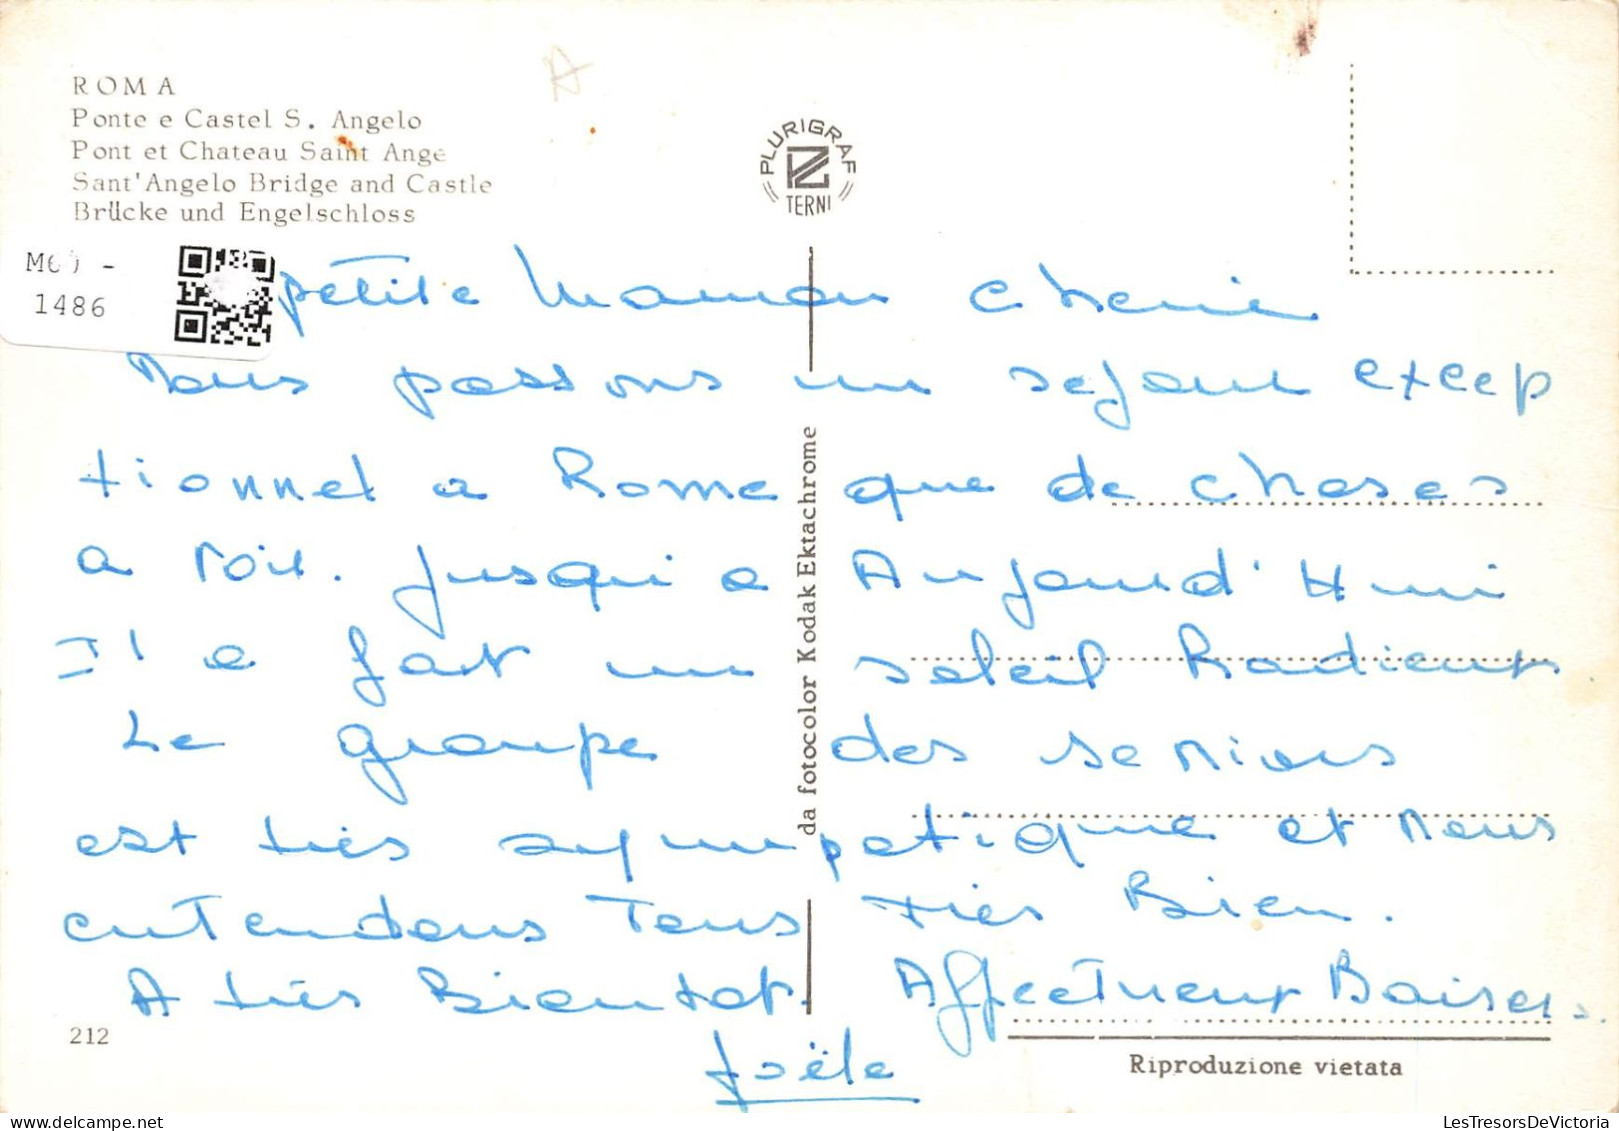 ROMA
Ponte e Castel S. Angelo
Pont et Chateau Saint Ange
Sant'Angelo Bridge and Castle
Brücke und Engelschloss
PLURIGRAF
TERNI
1486
petite Maman cherie
Nous passons un sejour excep
tionnel a Rome que de choses
a voir. Jusqu'a Aujourd'Hui
Il a fait un soleil Radieux.
Le groupe des seniors
est très sympatique et nous
entendons Tous très Bien.
A très Bientot. Affectueux Baisers.
Joële
da fotocolor Kodak Ektachrome
212
Riproduzione vietata
LesTresorsDeVictoria